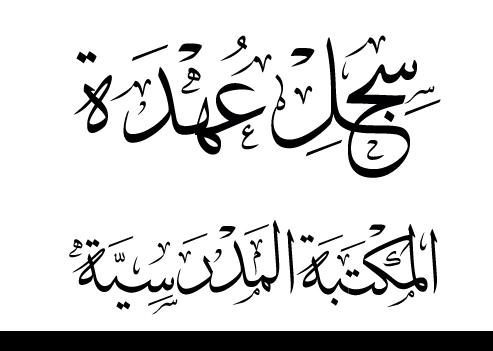 سِجِل عُهْدَة
المَكْتَبَة المَدْرَسِيَّة